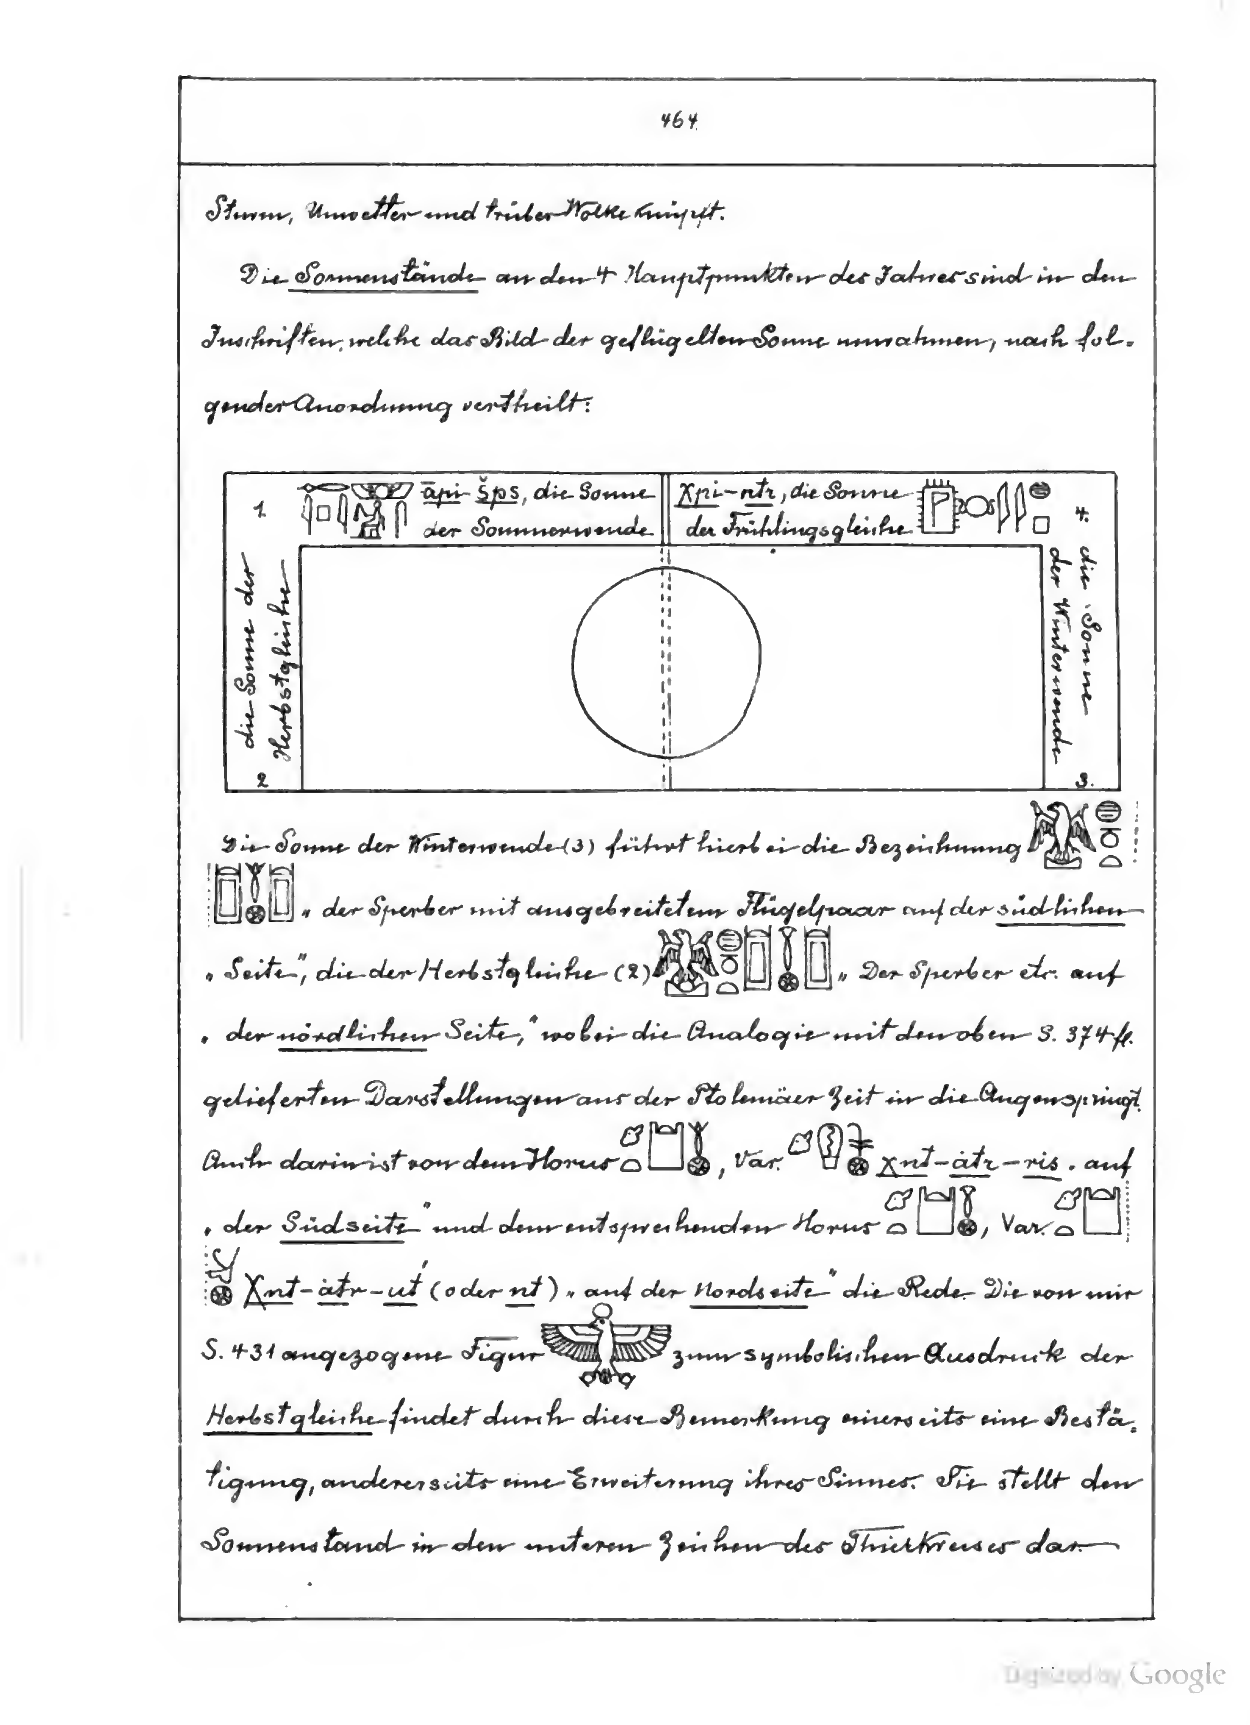 464
Sturm, Unwetter und trüber Wolke knüpft.
Die Sonnenstände an den 4 Hauptpunkten des Jahres sind in den
Inschriften, welche das Bild der geflügelten Sonne umrahmen, nach fol-
gender Anordnung vertheilt:
1. āpi-šps, die Sonne
der Sommerwende
χpi-nṯr, die Sonne
der Frühlingsgleiche
4.
die Sonne der
Herbstgleiche
2
die Sonne
der Winterwende
3.
Die Sonne der Winterwende (3) führt hierbei die Bezeichnung
„ der Sperber mit ausgebreitetem Flügelpaar auf der südlichen
„ Seite“, die der Herbstgleiche (2) „ Der Sperber etc. auf
„ der nördlichen Seite,“ wobei die Analogie mit den oben S. 374 fl.
gelieferten Darstellungen aus der Ptolemäer Zeit in die Augen springt.
Auch darin ist von dem Horus , Var. χnt-àtr-ris „ auf
„ der Südseite“ und dem entsprechenden Horus , Var.
χnt-àtr-ut (oder nt) „ auf der Nordseite“ die Rede. Die von mir
S. 431 angezogene Figur zum symbolischen Ausdruck der
Herbstgleiche findet durch diese Bemerkung einerseits eine Bestä-
tigung, andererseits eine Erweiterung ihres Sinnes. Sie stellt den
Sonnenstand in den unteren Zeichen des Thierkreises dar.
Digitized by Google